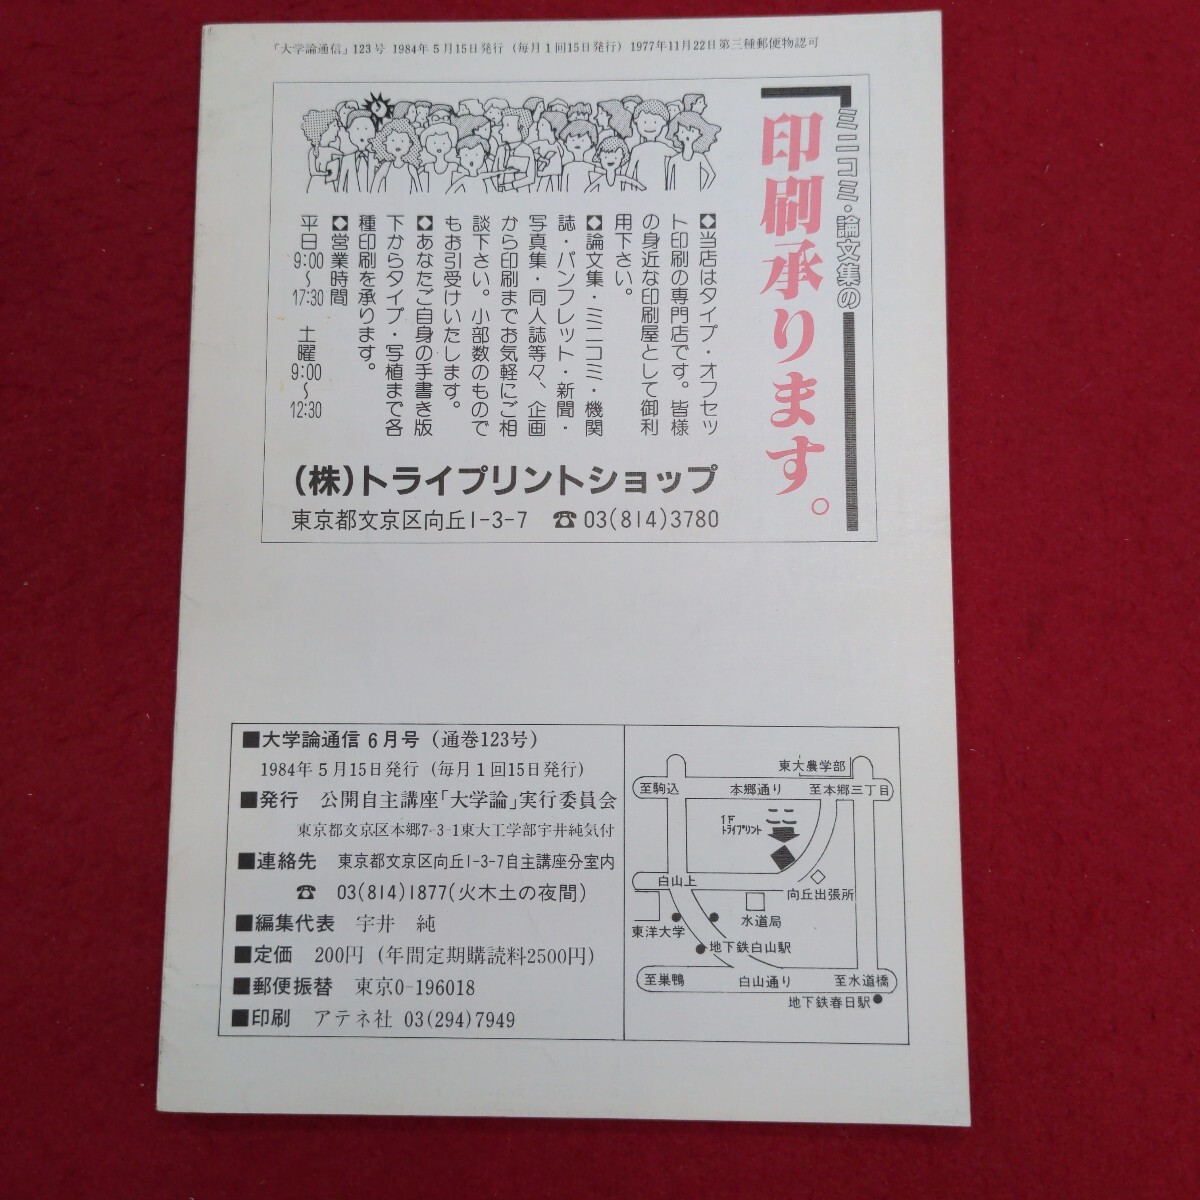 「大学論通信」123号 1984年5月15日発行(毎月1回15日発行)1977年11月22日第三種郵便物認可
ミニコミ・論文集の
印刷承ります。
◆当店はタイプ・オフセッ
ト印刷の専門店です。皆様
の身近な印刷屋として御利
用下さい。
◆論文集・ミニコミ・機関
誌・パンフレット・新聞・
写真集・同人誌等々、企画
から印刷までお気軽にご相
談下さい。小部数のもので
もお引受けいたします。
◆あなたご自身の手書き版
下からタイプ・写植まで各
種印刷を承ります。
◆営業時間
平日9:00〜17:30 土曜9:00〜12:30
(株)トライプリントショップ
東京都文京区向丘1-3-7 ☎03(814)3780
■大学論通信6月号(通巻123号)
1984年5月15日発行(毎月1回15日発行)
■発行 公開自主講座「大学論」実行委員会
東京都文京区本郷7-3-1東大工学部宇井純気付
■連絡先 東京都文京区向丘1-3-7自主講座分室内
☎ 03(814)1877(火木土の夜間)
■編集代表 宇井 純
■定価 200円(年間定期購読料2500円)
■郵便振替 東京0-196018
■印刷 アテネ社 03(294)7949
東大農学部
至駒込 本郷通り 至本郷三丁目
ここ
1F
トライプリント
白山上
向丘出張所
水道局
東洋大学
地下鉄白山駅
至巣鴨 白山通り 至水道橋
地下鉄春日駅